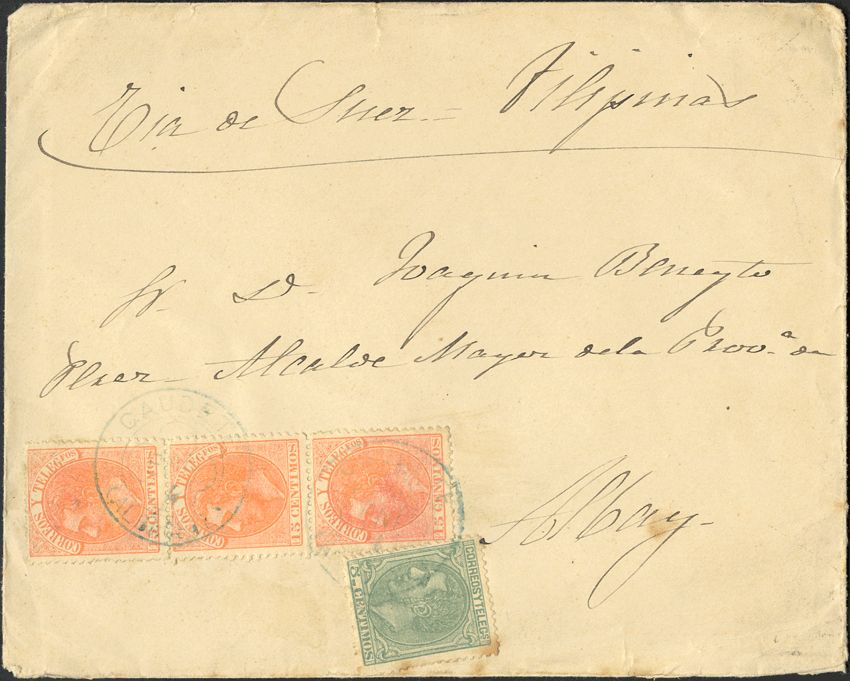 Via de Suez = Filipinas
Sr. D. Joaquin Beneyto
Perez Alcalde Mayor de la Prov.ª de
Albay.
CAUDETE
CORREOS Y TELEGFOS
15 CENTIMOS
CORREOS Y TELEGFOS
15 CENTIMOS
CORREOS Y TELEGFOS
15 CENTIMOS
CORREOS Y TELEGS
5 Cs PESETA